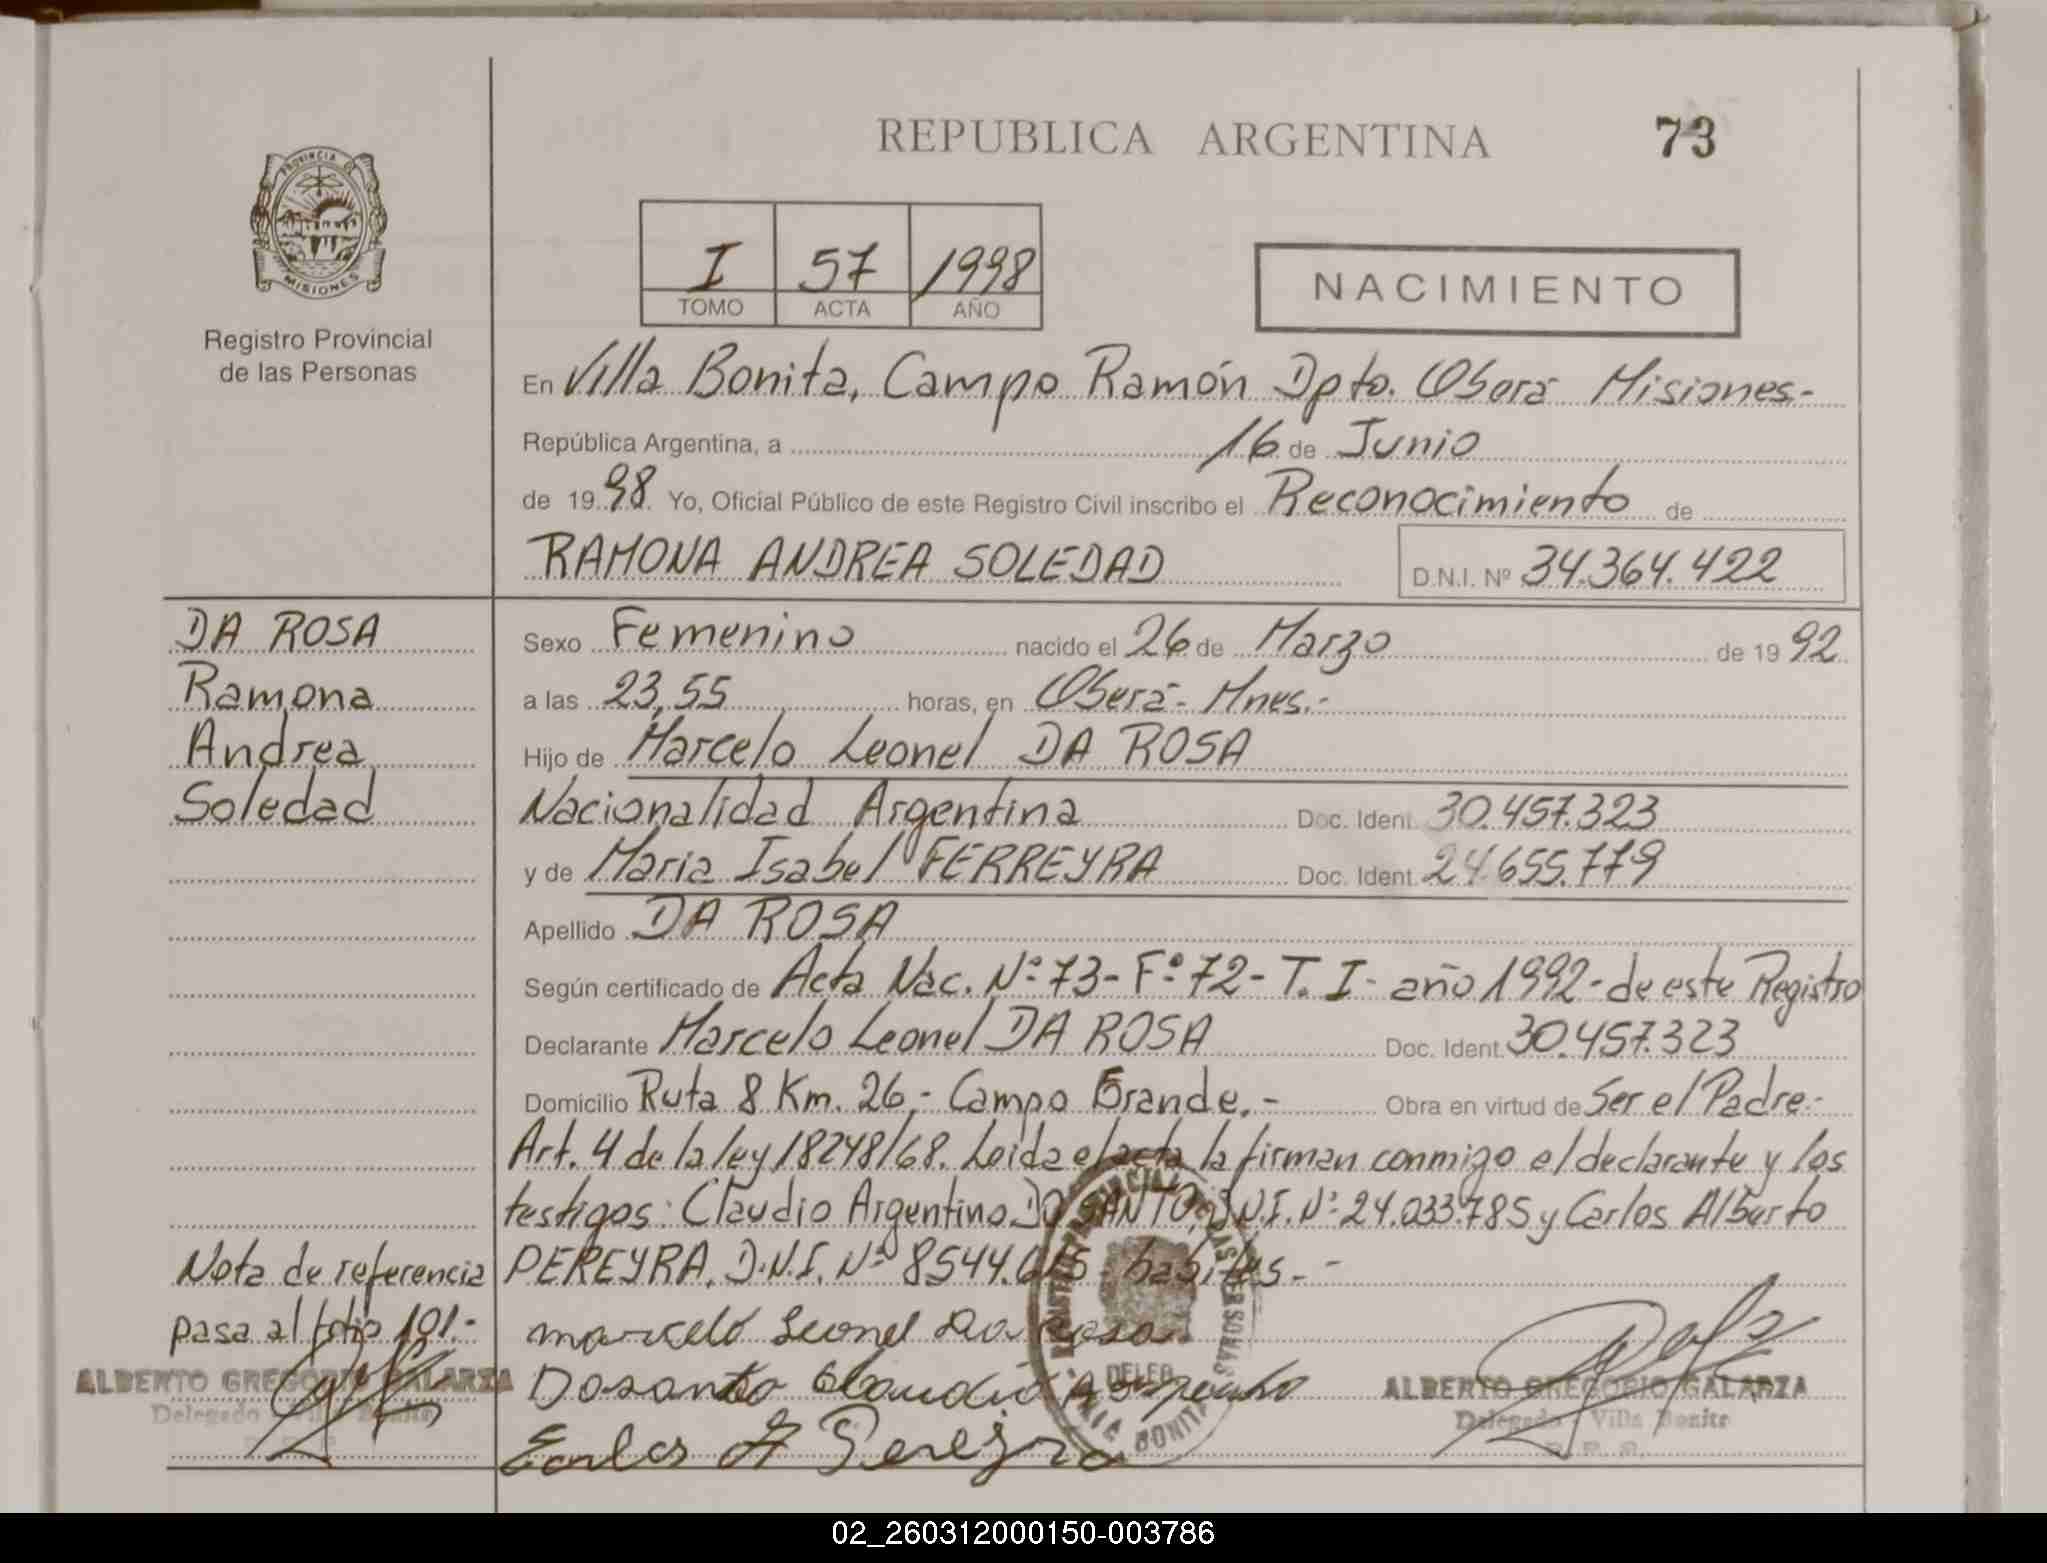 REPUBLICA ARGENTINA
73
PROVINCIA DE
MISIONES
Registro Provincial
de las Personas
I 57 1998
TOMO ACTA AÑO
NACIMIENTO
En Villa Bonita, Campo Ramón Dpto. Oberá Misiones.-
República Argentina, a 16 de Junio
de 1998 Yo, Oficial Público de este Registro Civil inscribo el Reconocimiento de
RAMONA ANDREA SOLEDAD D.N.I. Nº 34.364.422
DA ROSA
Ramona
Andrea
Soledad
Sexo Femenino nacido el 26 de Marzo de 1992
a las 23,55 horas, en Oberá - Mnes.-
Hijo de Marcelo Leonel DA ROSA
Nacionalidad Argentina Doc. Ident. 30.457.323
y de Maria Isabel FERREYRA Doc. Ident. 24.655.779
Apellido DA ROSA
Según certificado de Acta Nac. Nº 73 - Fº 72 - T. I - año 1992 - de este Registro
Declarante Marcelo Leonel DA ROSA Doc. Ident. 30.457.323
Domicilio Ruta 8 Km. 26,- Campo Grande.- Obra en virtud de Ser el Padre.-
Art. 4 de la ley 18248/68. Leida el acta la firman conmigo el declarante y los
testigos: Claudio Argentino DO SANTO, D.N.I. Nº 24.033.785 y Carlos Alberto
PEREYRA, D.N.I. Nº 8544.615 - habiles.-
Nota de referencia
pasa al folio 101.-
ALBERTO GREGORIO GALARZA
Delegado - Villa Bonita
marcelo Leonel Da Rosa
Dosanto Claudio Argentino
Carlos A Pereyra
ALBERTO GREGORIO GALARZA
Delegado - Villa Bonita
R. P. P.
02_260312000150-003786